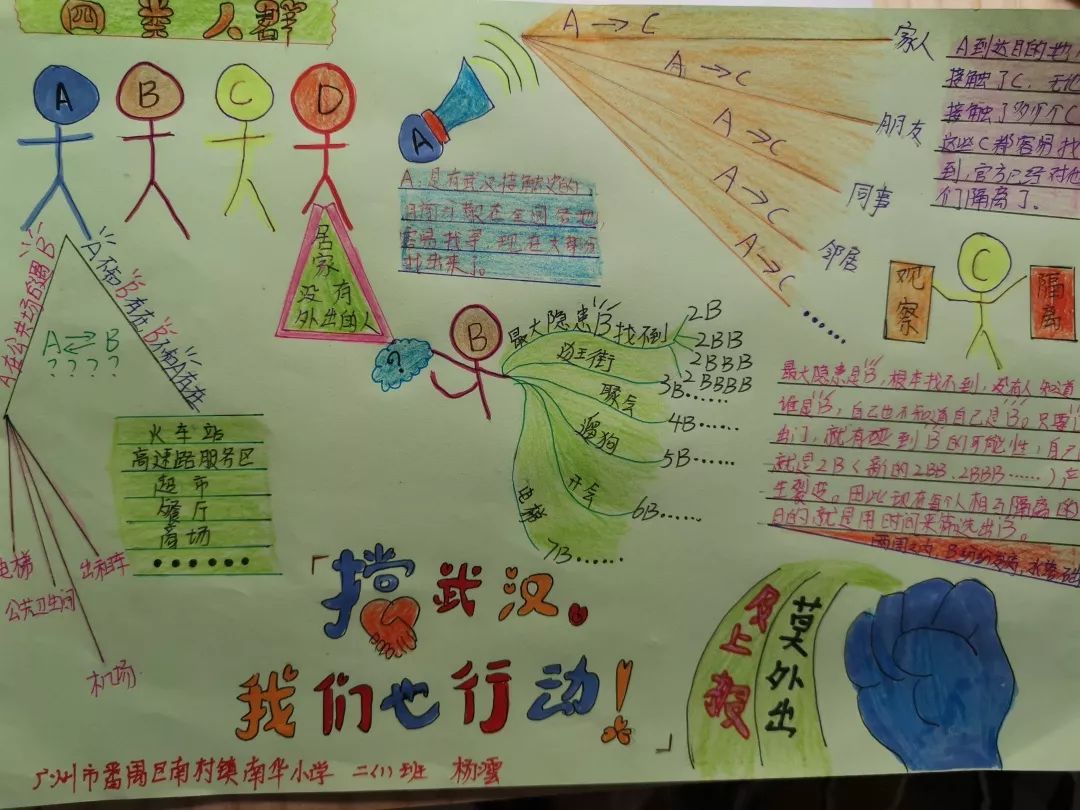 四类人群
A
B
C
D
A在公共场合遇B
A不知B存在
B不知A存在
A⇄B
? ? ? ?
居家
没有
外出的人
火车站
高速路服务区
超市
餐厅
商场
••••••
电梯
公共卫生间
出租车
机场
A
A:是有武汉接触史的,
容易找寻,现在大部分
找出来了。
A→C
A→C
A→C
A→C
A→C
家人
朋友
同事
邻居
A到达目的地,
接触了C,无论
接触了多少个C
这些C都容易找
到,官方已经对他
们隔离了。
观察
C
隔离
?
B
最大隐患B找不到
2B
2BB
2BBB
2BBBB
逛王街
3B……
聚会
4B……
遛狗
5B……
开会
6B……
电梯
7B……
最大隐患是B,根本找不到,没有人知道
谁是B,自己也不知道自己是B。只要
出门,就有碰到B的可能性,自己
就是2B(新的2BB、2BBB……)产
生裂变。因此现在每个人相互隔离的
目的,就是用时间来筛选出B。
两周之内,B纷纷发病,水落石
「挡武汉。
我们也行动!」
及上报
莫外出
广州市番禺区南村镇南华小学 二(1)班 杨澐